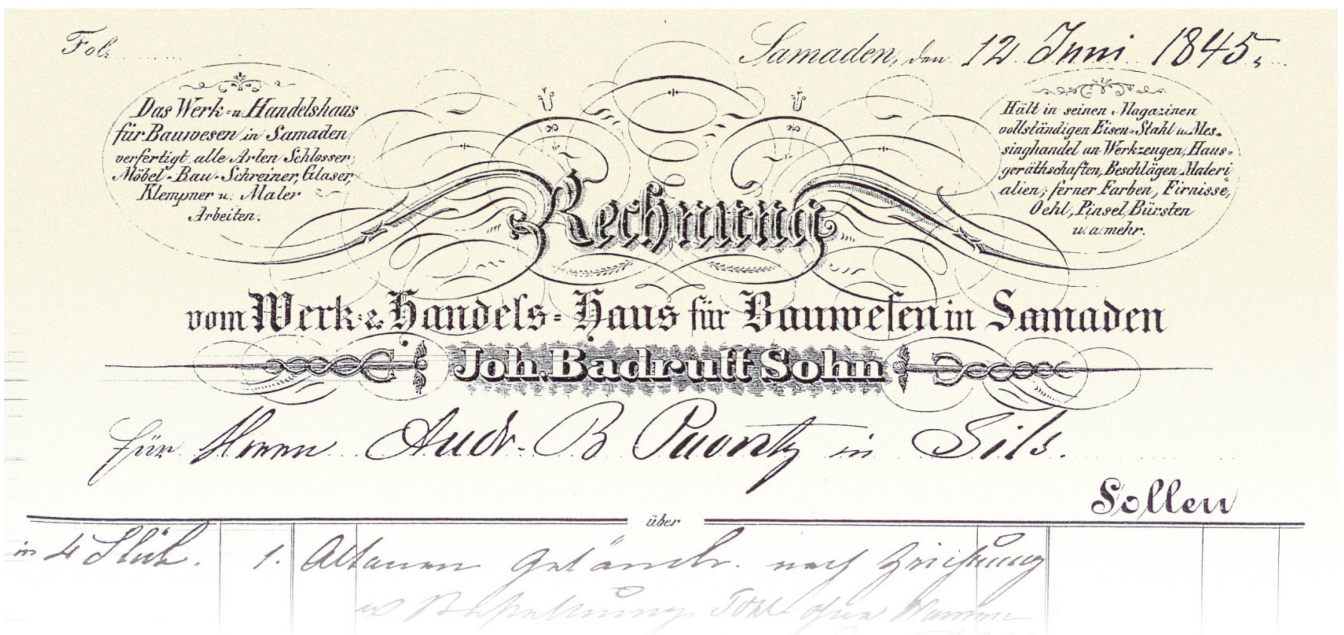 Fol.
Samaden, den 12 Juni 1845.
Das Werk- u. Handelshaus
für Bauwesen in Samaden
verfertigt alle Arten Schlosser,
Möbel-Bau-Schreiner, Glaser,
Klempner u. Maler
Arbeiten.
Hält in seinen Magazinen
vollständigen Eisen-Stahl u. Mes-
singhandel an Werkzeugen, Haus-
geräthschaften, Beschlägen Materi
alien, ferner Farben, Firnisse,
Oehl, Pinsel, Bürsten
u. a. mehr.
Rechnung
vom Werk- & Handels-Haus für Bauwesen in Samaden
Joh. Badrutt Sohn
für Herrn Andr. B Puonty in Sils.
Sollen
über
in 4 Stük. 1. Altanen Geländr. nach Zeichnung
ohne